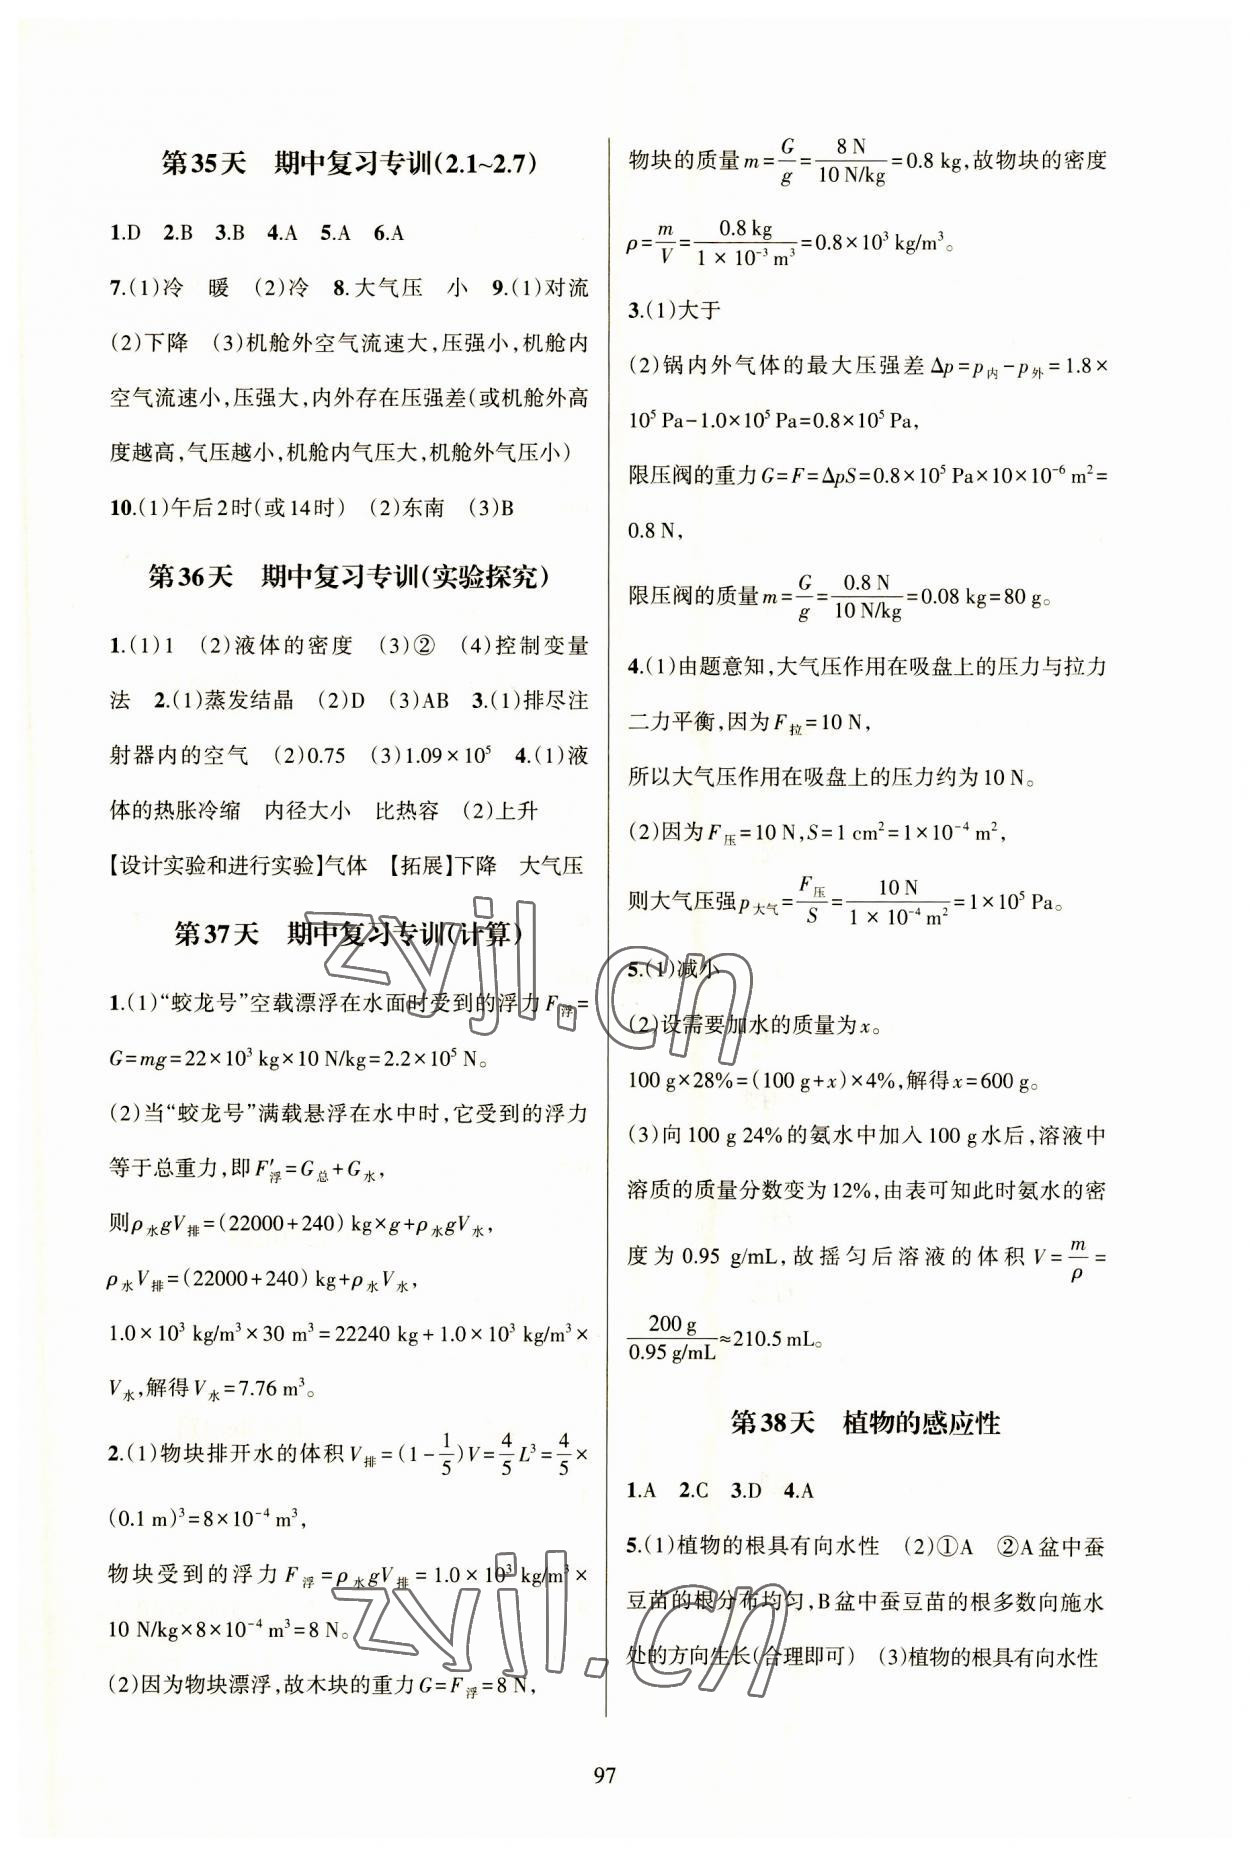 第35天　期中复习专训(2.1~2.7)
1.D　2.B　3.B　4.A　5.A　6.A
7.(1)冷　暖　(2)冷　8.大气压　小　9.(1)对流
(2)下降　(3)机舱外空气流速大,压强小,机舱内
空气流速小,压强大,内外存在压强差(或机舱外高
度越高,气压越小,机舱内气压大,机舱外气压小)
10.(1)午后2时(或14时)　(2)东南　(3)B
第36天　期中复习专训(实验探究)
1.(1)1　(2)液体的密度　(3)②　(4)控制变量
法　2.(1)蒸发结晶　(2)D　(3)AB　3.(1)排尽注
射器内的空气　(2)0.75　(3)1.09×10⁵　4.(1)液
体的热胀冷缩　内径大小　比热容　(2)上升
【设计实验和进行实验】气体　【拓展】下降　大气压
第37天　期中复习专训(计算)
1.(1)“蛟龙号”空载漂浮在水面时受到的浮力F浮=
G=mg=22×10³ kg×10 N/kg=2.2×10⁵ N。
(2)当“蛟龙号”满载悬浮在水中时,它受到的浮力
等于总重力,即F′浮=G总+G水,
则ρ水gV排=(22000+240) kg×g+ρ水gV水,
ρ水V排=(22000+240) kg+ρ水V水,
1.0×10³ kg/m³×30 m³=22240 kg+1.0×10³ kg/m³×
V水,解得V水=7.76 m³。
2.(1)物块排开水的体积V排=(1-1/5)V=4/5L³=4/5×
(0.1 m)³=8×10⁻⁴ m³,
物块受到的浮力F浮=ρ水gV排=1.0×10³ kg/m³×
10 N/kg×8×10⁻⁴ m³=8 N。
(2)因为物块漂浮,故木块的重力G=F浮=8 N,
物块的质量m=G/g=8 N/10 N/kg=0.8 kg,故物块的密度
ρ=m/V=0.8 kg/1×10⁻³ m³=0.8×10³ kg/m³。
3.(1)大于
(2)锅内外气体的最大压强差Δp=p内-p外=1.8×
10⁵ Pa-1.0×10⁵ Pa=0.8×10⁵ Pa,
限压阀的重力G=F=ΔpS=0.8×10⁵ Pa×10×10⁻⁶ m²=
0.8 N,
限压阀的质量m=G/g=0.8 N/10 N/kg=0.08 kg=80 g。
4.(1)由题意知,大气压作用在吸盘上的压力与拉力
二力平衡,因为F拉=10 N,
所以大气压作用在吸盘上的压力约为10 N。
(2)因为F压=10 N,S=1 cm²=1×10⁻⁴ m²,
则大气压强p大气=F压/S=10 N/1×10⁻⁴ m²=1×10⁵ Pa。
5.(1)减小
(2)设需要加水的质量为x。
100 g×28%=(100 g+x)×4%,解得x=600 g。
(3)向100 g 24%的氨水中加入100 g水后,溶液中
溶质的质量分数变为12%,由表可知此时氨水的密
度为0.95 g/mL,故摇匀后溶液的体积V=m/ρ=
200 g/0.95 g/mL≈210.5 mL。
第38天　植物的感应性
1.A　2.C　3.D　4.A
5.(1)植物的根具有向水性　(2)①A　②A盆中蚕
豆苗的根分布均匀,B盆中蚕豆苗的根多数向施水
处的方向生长(合理即可)　(3)植物的根具有向水性
97
zyjl.cn
zyjl.cn